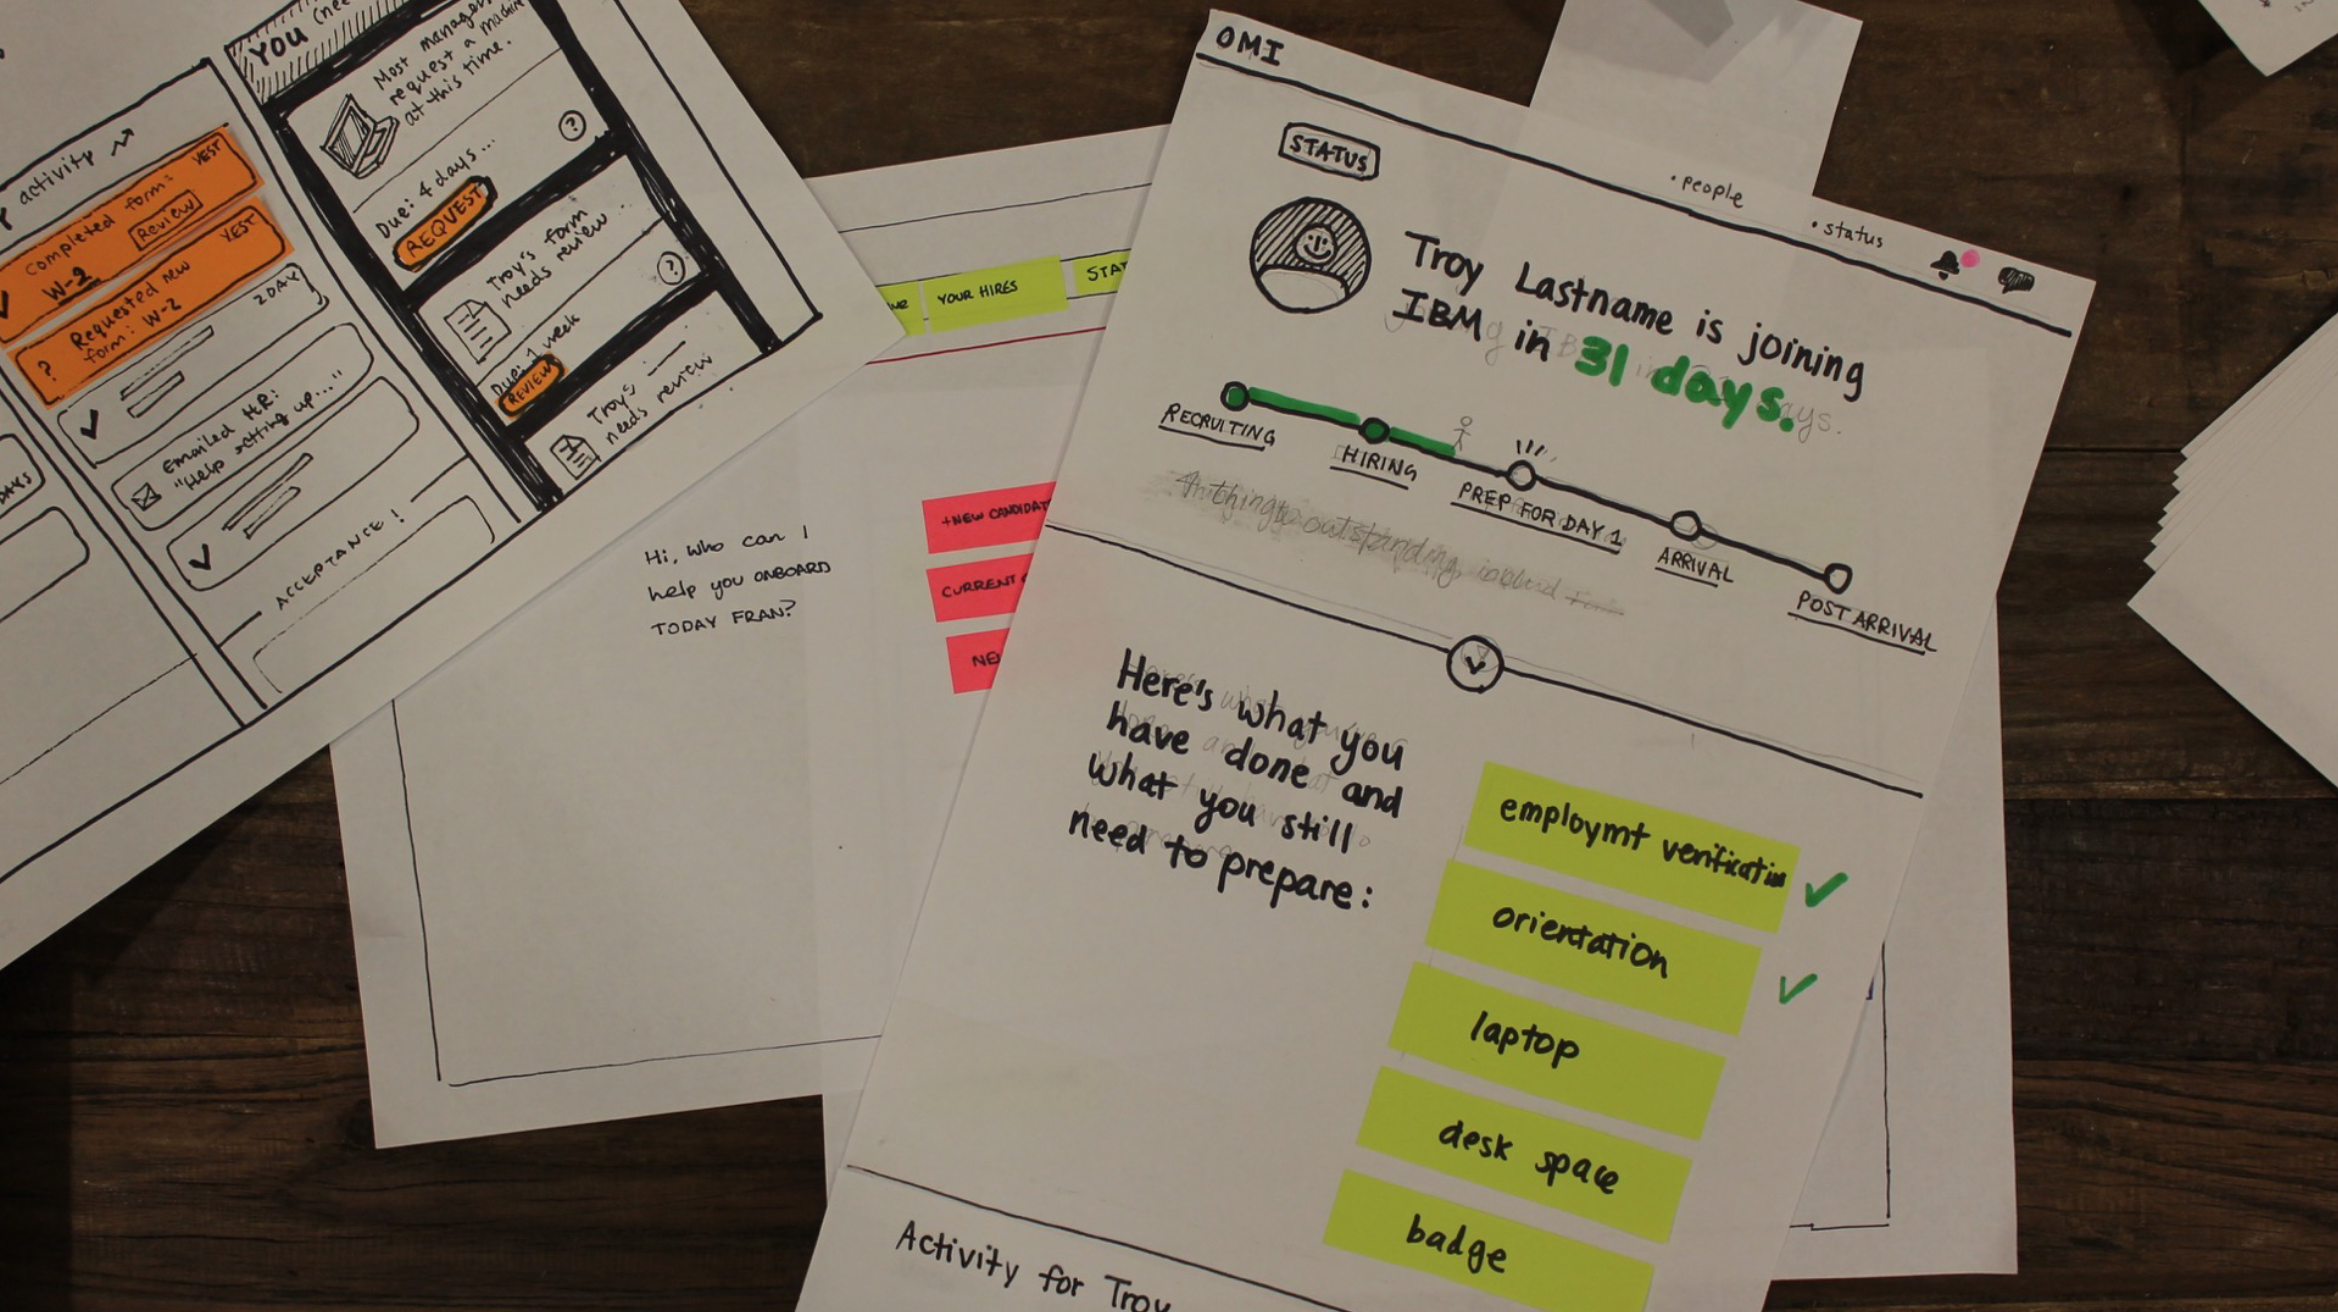 activity
Completed form:
W-2
Review
YEST
Requested new
form: W-2
YEST
?
2 DAY
Emailed HR:
"Help setting up..."
ACCEPTANCE!
DAYS
YOU
Most manager
request a machine
at this time.
Due: 4 days...
?
REQUEST
Troy's form
needs review...
Due: 1 week
?
REVIEW
Troy's
needs review
YOUR HIRES
STAT
Hi, who can I
help you ONBOARD
TODAY FRAN?
+NEW CANDIDAT
CURRENT
NE
OMI
• people
• status
STATUS
Troy Lastname is joining
IBM in 31 days.
RECRUITING
HIRING
PREP FOR DAY 1
ARRIVAL
POST ARRIVAL
Here's what you
have done and
what you still
need to prepare:
employmt verification
orientation
laptop
desk space
badge
Activity for Troy